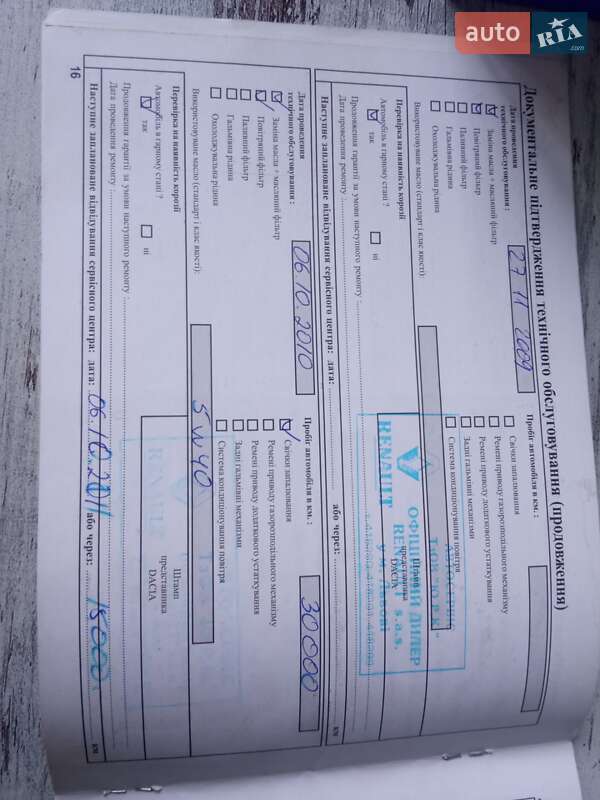 auto RIA.com
Документальне підтвердження технічного обслуговування (продовження)
Дата проведення технічного обслуговування :
27 11 2009
Пробіг автомобіля в км. :
Заміна масла + масляний фільтр
Повітряний фільтр
Паливний фільтр
Гальмівна рідина
Охолоджувальна рідина
Свічки запалювання
Ремені приводу газорозподільного механізму
Ремені приводу додаткового устаткування
Задні гальмівні механізми
Система кондиціонування повітря
Використовуване масло (стандарт і клас якості):
Перевірка на наявність корозії
Автомобіль в гарному стані ?
так
ні
Штамп
представника
DACIA
RENAULT
ОФІЦІЙНИЙ ДИЛЕР
RENAULT s.a.s.
у м. Львові
Продовження гарантії за умови наступного ремонту :
Дата проведення ремонту :
Наступне заплановане відвідування сервісного центра: дата:
або через:
км
Дата проведення
технічного обслуговування :
06.10.2010
Пробіг автомобіля в км. :
30000
Заміна масла + масляний фільтр
Повітряний фільтр
Паливний фільтр
Гальмівна рідина
Охолоджувальна рідина
Свічки запалювання
Ремені приводу газорозподільного механізму
Ремені приводу додаткового устаткування
Задні гальмівні механізми
Система кондиціонування повітря
Використовуване масло (стандарт і клас якості):
5w40
Перевірка на наявність корозії
Автомобіль в гарному стані ?
так
ні
Штамп
представника
DACIA
Продовження гарантії за умови наступного ремонту :
Дата проведення ремонту :
Наступне заплановане відвідування сервісного центра: дата: 06.10.2011 або через: 15000 км
16